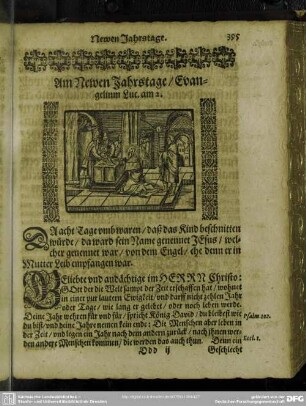 Newen Jahrstage. 395
Am Newen Jahrstage / Evan-
gelium Luc. am 2.
DA acht Tage vmb waren / daß das Kind beschnitten
würde / da ward sein Name genennet JEsus / wel-
cher genennet war / von dem Engel / ehe denn er in
Mutter Leib empfangen war.
GEliebte vnd andächtige im HERRN Christo:
GOtt der die Welt sampt der Zeit erschaffen hat / wohnet
in einer pur lautern Ewigkeit / vnd darff nicht zehlen Jahr
oder Tage / wie lang er gelebet / oder noch leben werde.
Deine Jahr wehren für vnd für / spricht König David / du bleibest wie
Psalm 102.
du bist / vnd deine Jahre nemen kein ende: Die Menschen aber leben in
der Zeit / vnd legen ein Jahr nach dem andern zurück / nach ihnen wer-
den andere Menschen kommen / die werden das auch thun. Denn ein
Eccl. 1.
Ddd ij Geschlecht